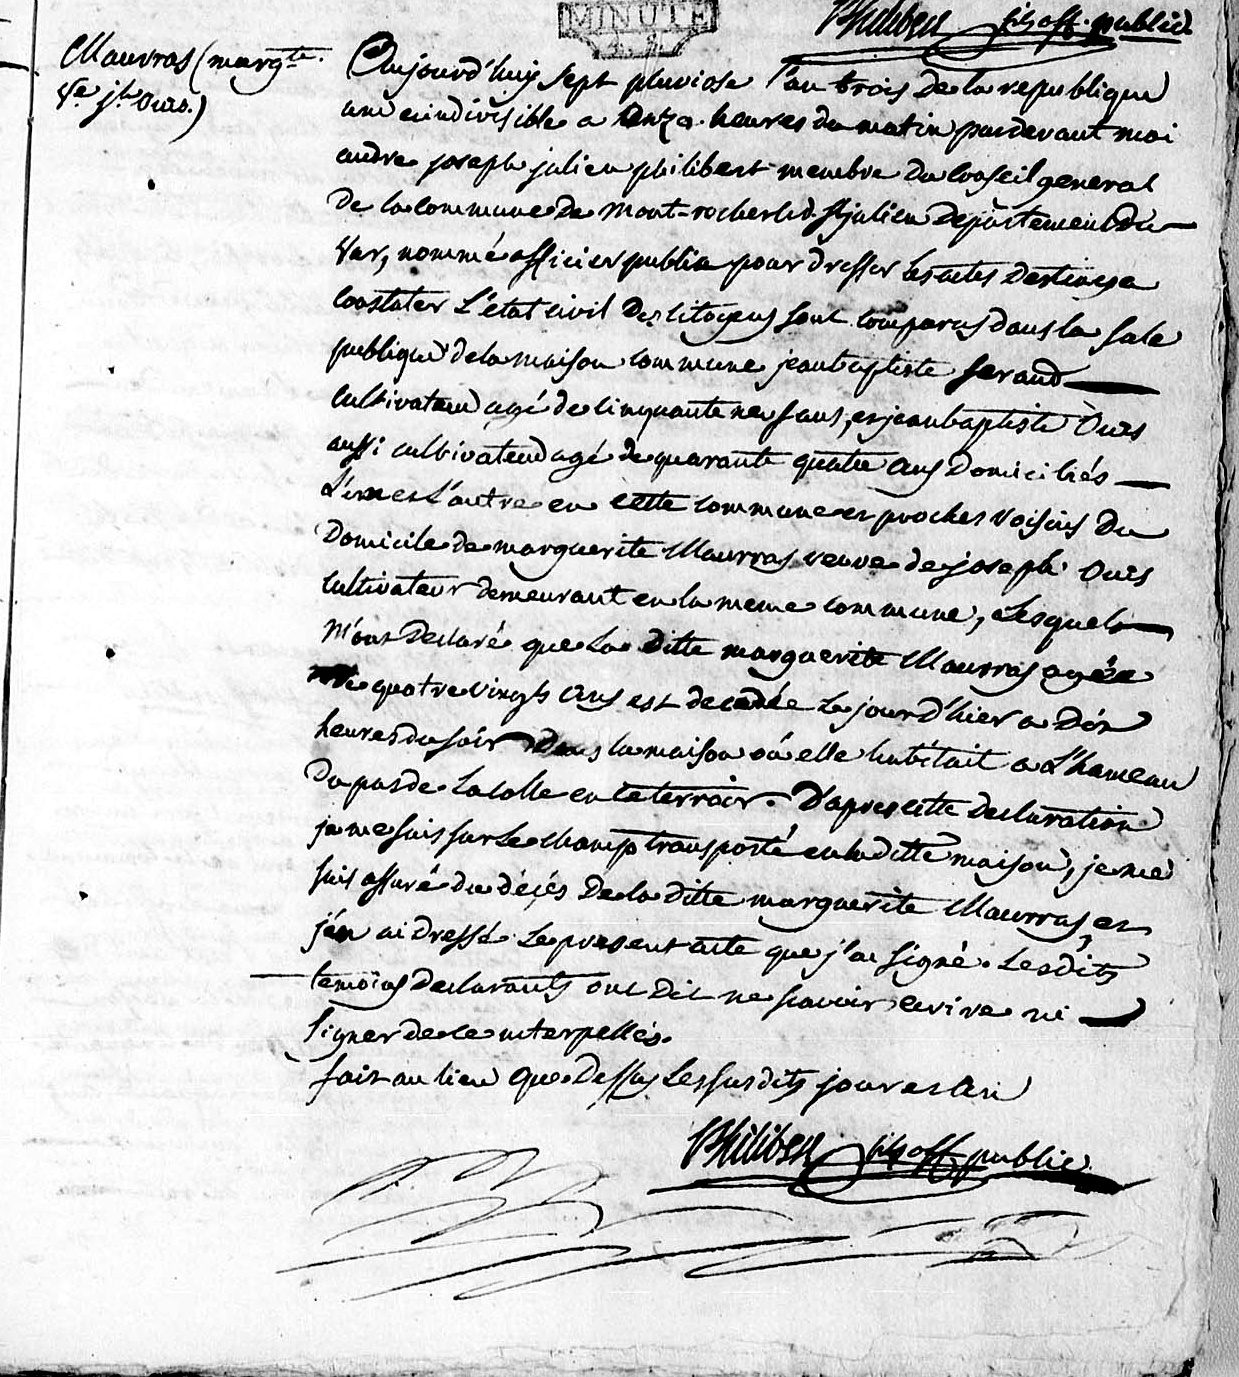 MINUTE
Philibert fils off. public
Maurras (margte.
Ve. jh. Ours.)
Aujourd'huy sept pluviose l'an trois de la republique
une et indivisible a onze heures du matin pardevant moi
andre joseph julien philibert membre du Conseil general
de la commune de mont-rocher lid. St julien Departement du
Var, nommé officier public pour dresser les actes destines a
Constater L'état civil des citoyens sont comparus dans la sale
publique de la maison commune jean baptiste feraud
cultivateur agé de cinquante neuf ans, et jean baptiste Ours
aussi cultivateur agé de quarante quatre ans Domiciliés
L'un et L'autre en cette commune et proches voisins du
Domicile de marguerite Maurras veuve de joseph Ours
cultivateur demeurant en la meme commune, Lesquels
m'ont Declaré que la ditte marguerite Maurras agée
de quatre vingts ans est decedée le jour d'hier a dix
heures du soir dans la maison où elle habitait a L'hameau
du pas de la colle en ce terroir. D'apres cette declaration
je me suis sur le champ transporté en la ditte maison, je me
suis assuré du décés de la ditte marguerite Maurras, et
j'en ai dressé le present acte que j'ai signé. Lesdits
temoins declarants ont dit ne scavoir ecrire ni
signer de ce interpellés.
fait au lieu que dessus les susdits jour et an
Philibert fils off public